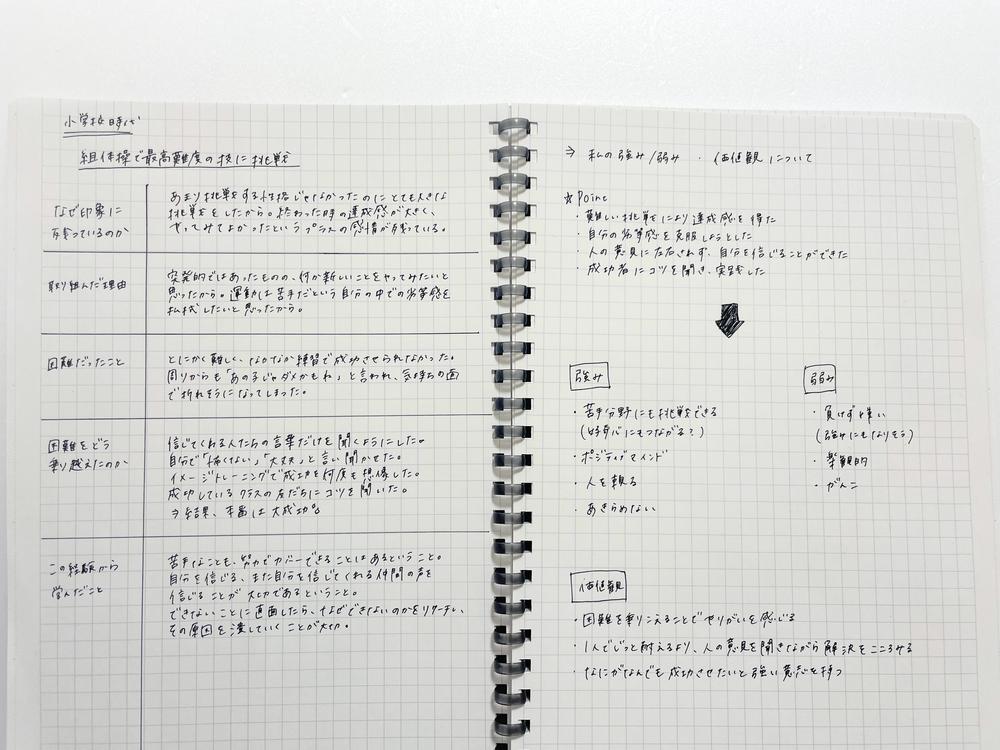 小学校時代
組体操で最高難度の技に挑戦
なぜ印象に
残っているのか
あまり挑戦をする性格じゃなかったのにとても大きな
挑戦をしたから。終わった時の達成感が大きく、
やってみてよかったというプラスの感情が残っている。
取り組んだ理由
突発的ではあったものの、何か新しいことをやってみたいと
思ったから。運動は苦手だという自分の中での劣等感を
払拭したいと思ったから。
困難だったこと
とにかく難しく、なかなか練習で成功させられなかった。
周りからも「あの子じゃダメかもね」と言われ、気持ちの面
で折れそうになってしまった。
困難をどう
乗り越えたのか
信じてくれる人たちの言葉だけを聞くようにした。
自分で「怖くない」「大丈夫」と言い聞かせた。
イメージトレーニングで成功を何度も想像した。
成功しているクラスの友だちにコツを聞いた。
→結果、本番は大成功!!
この経験から
学んだこと
苦手なことも、努力でカバーできることはあるということ。
自分を信じる、また自分を信じてくれる仲間の声を
信じることが大切であるということ。
できないことに直面したら、なぜできないのかをリサーチし、
その原因を潰していくことが大切。
⇒ 私の強み/弱み ・ 価値観について
☆Point
・難しい挑戦により達成感を得た
・自分の劣等感を克服しようとした
・人の意見に左右されず、自分を信じることができた
・成功者にコツを聞き、実践した
強み
・苦手分野にも挑戦できる
(好奇心にもつながる?)
・ポジティブマインド
・人を頼る
・あきらめない
弱み
・負けず嫌い
(強みにもなりそう)
・楽観的
・がんこ
価値観
・困難を乗りこえることでやりがいを感じる
・1人でじっと耐えるより、人の意見を聞きながら解決をこころみる
・なにがなんでも成功させたいと強い意志を持つ